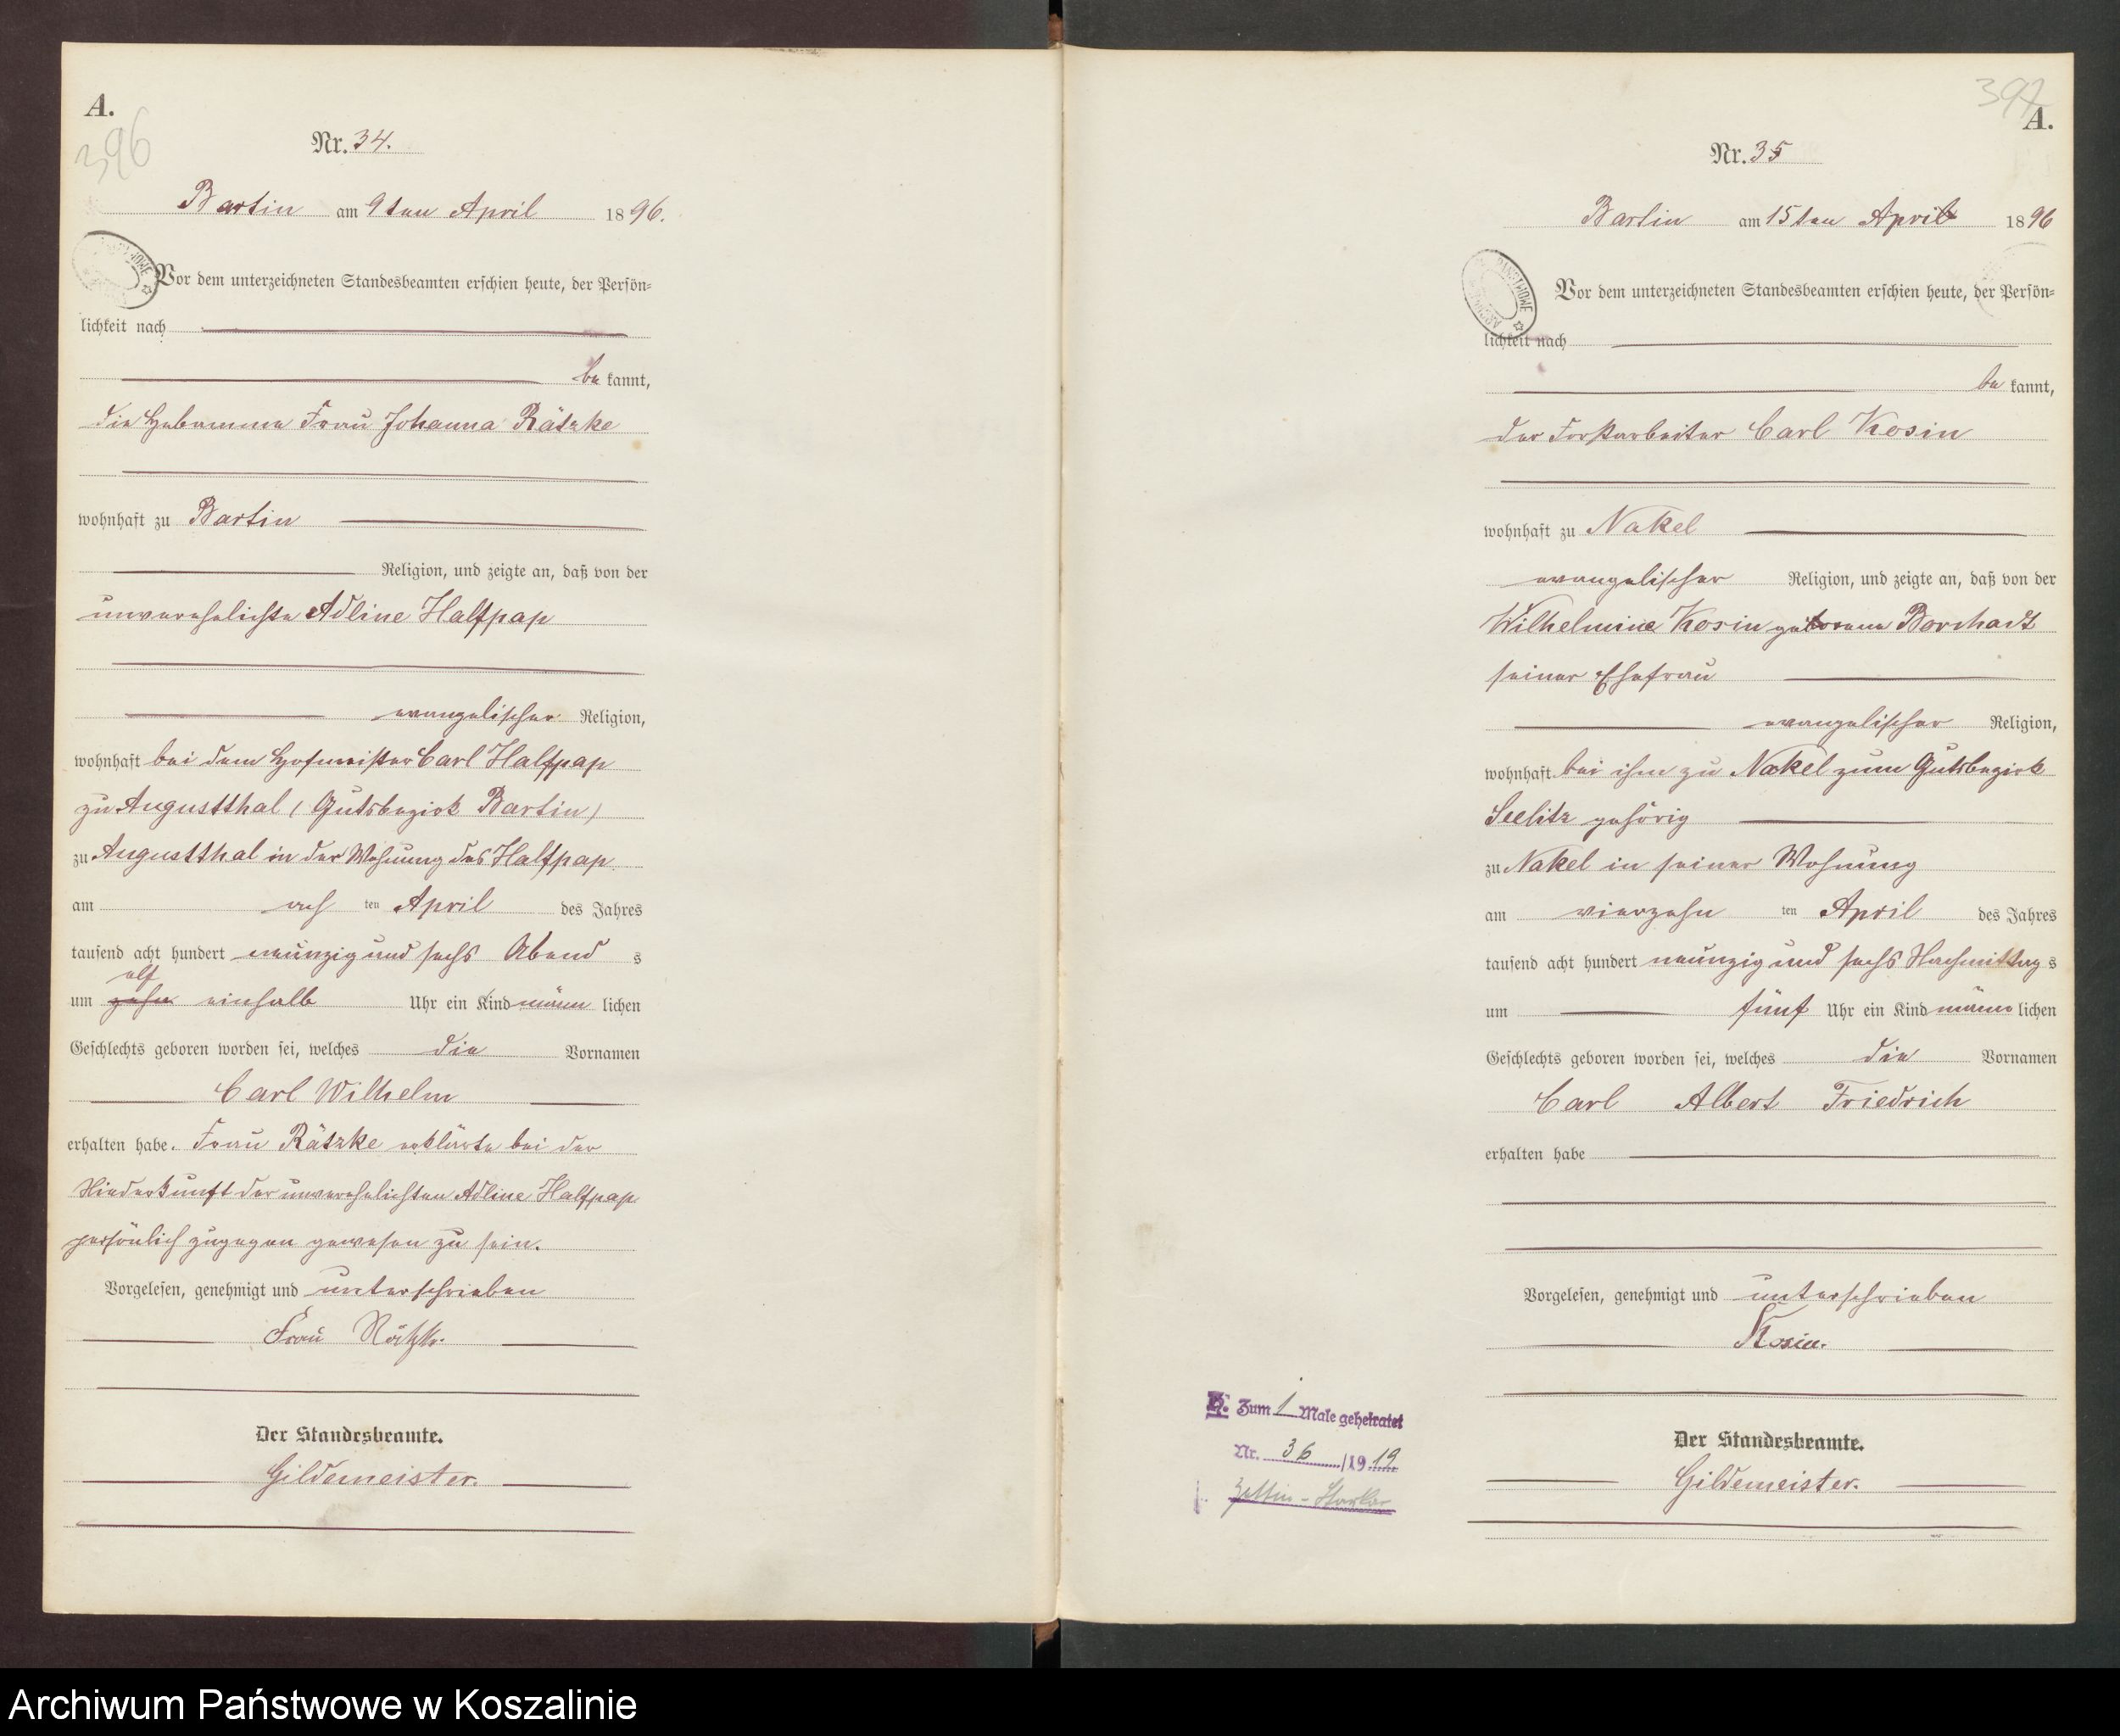 A.
396
Nr. 34.
Bartin am 9ten April 1896.
Vor dem unterzeichneten Standesbeamten erschien heute, der Persön=
lichkeit nach
be kannt,
die Hebamme Frau Johanna Rätzke
wohnhaft zu Bartin
Religion, und zeigte an, daß von der
unverehelichte Adline Halfpap
evangelischer Religion,
wohnhaft bei dem Hofmeister Carl Halfpap
zu Augustthal (Gutsbezirk Bartin)
zu Augustthal in der Wohnung des Halfpap
am ach ten April des Jahres
tausend acht hundert neunzig und sechs Abend s
elf
um zehn einhalb Uhr ein Kind männ lichen
Geschlechts geboren worden sei, welches die Vornamen
Carl Wilhelm
erhalten habe. Frau Rätzke erklärte bei der
Niederkunft der unverehelichten Adline Halfpap
persönlich zugegen gewesen zu sein.
Vorgelesen, genehmigt und unterschrieben
Frau Rätzke.
Der Standesbeamte.
Gildemeister.
397
A.
Nr. 35
Bartin am 15ten April 1896
Vor dem unterzeichneten Standesbeamten erschien heute, der Persön=
lichkeit nach
be kannt,
der Forstarbeiter Carl Kosin
wohnhaft zu Nakel
evangelischer Religion, und zeigte an, daß von der
Wilhelmine Kosin geborene Borchadt
seiner Ehefrau
evangelischer Religion,
wohnhaft bei ihm zu Nakel zum Gutsbezirk
Seelitz gehörig
zu Nakel in seiner Wohnung
am vierzehn ten April des Jahres
tausend acht hundert neunzig und sechs Nachmittag s
um fünf Uhr ein Kind männ lichen
Geschlechts geboren worden sei, welches die Vornamen
Carl Albert Friedrich
erhalten habe
Vorgelesen, genehmigt und unterschrieben
Kosin.
Der Standesbeamte.
Gildemeister.
H. Zum 1 Male geheiratet
Nr. 36 /1919
Archiwum Państwowe w Koszalinie